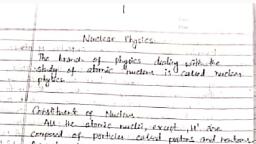 1
Nuclear Physics
The branch of physics dealing with the
study of atomic nucleus is called nuclear
physics
Constituent of Nucleus
All the atomic nuclei, except are
composed of particles called protons and neutrons